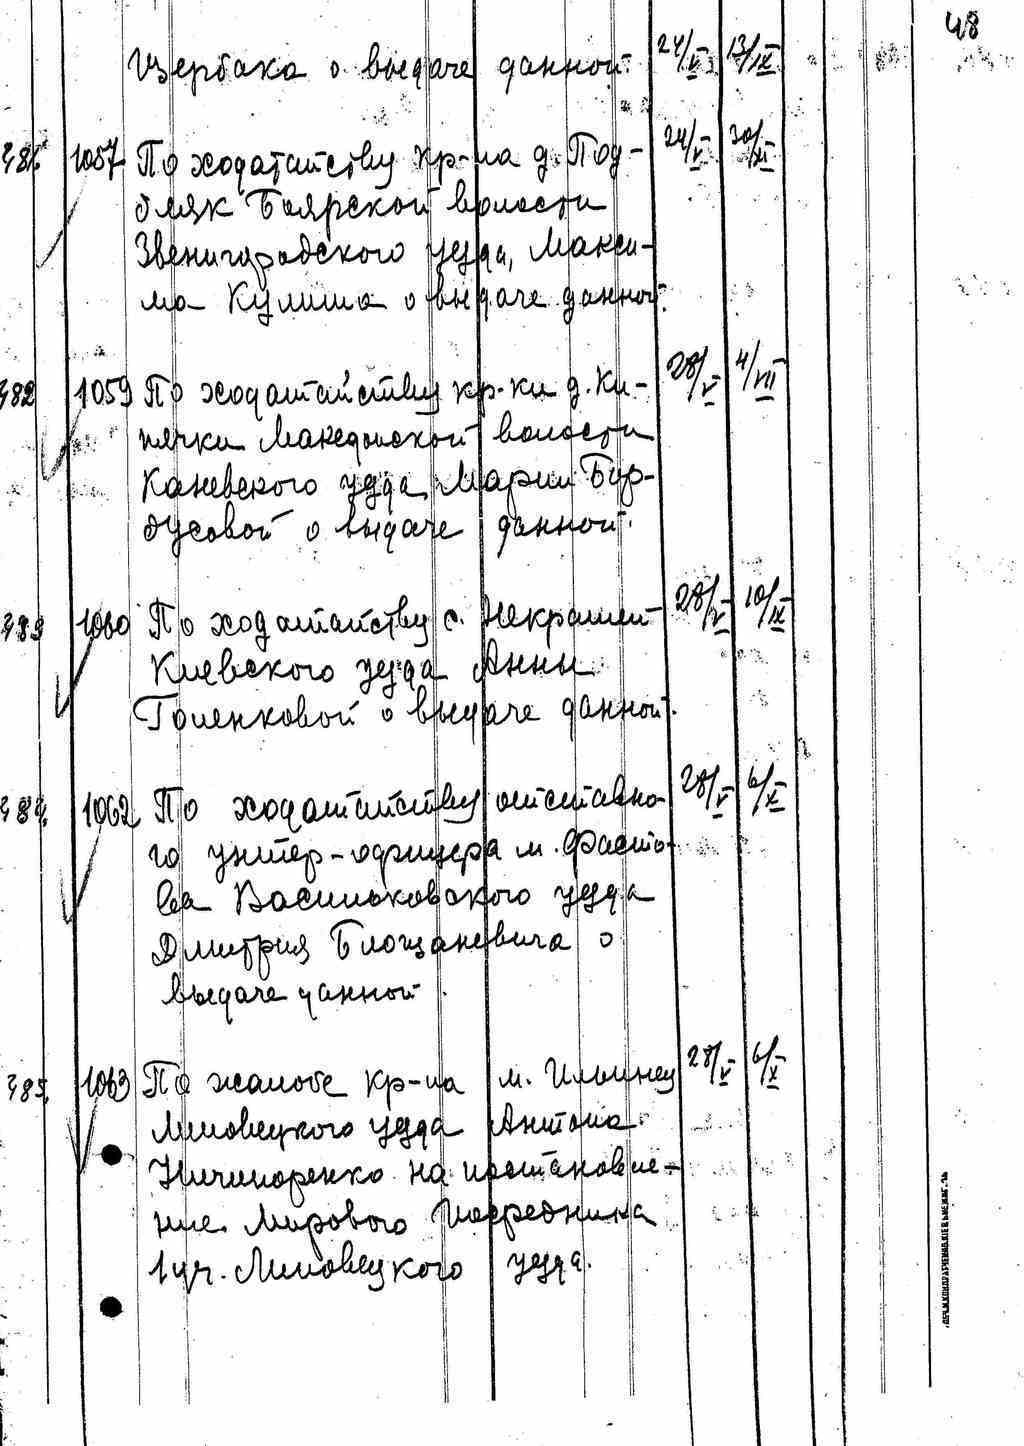 48
Щербака о выдаче данной. 24/V 13/IX
481. 1057 По ходатайству кр-на д. Под-
24/V 30/XI
бляк Боярской волости
Звенигородского уезда, Макси-
ма Кулиша о выдаче данной.
482 1059 По ходатайству кр-ки д. Ки-
28/V 4/VII
пячки Македонской волости
Каневского уезда, Марии Бур-
дусовой о выдаче данной.
483 1060 По ходатайству с. Некрашей
28/V 10/IX
Киевского уезда Анны
Голенковой о выдаче данной.
484. 1062 По ходатайству отставно-
28/V 6/X
го унтер-офицера м. Фасто-
ва Васильковского уезда
Дмитрия Блощаневича о
выдаче данной.
485. 1063 По жалобе кр-на м. Ильинец
28/V 6/X
Липовецкого уезда Антона
Ничипоренко на постановле-
ние Мирового Посредника
1 уч. Липовецкого уезда.